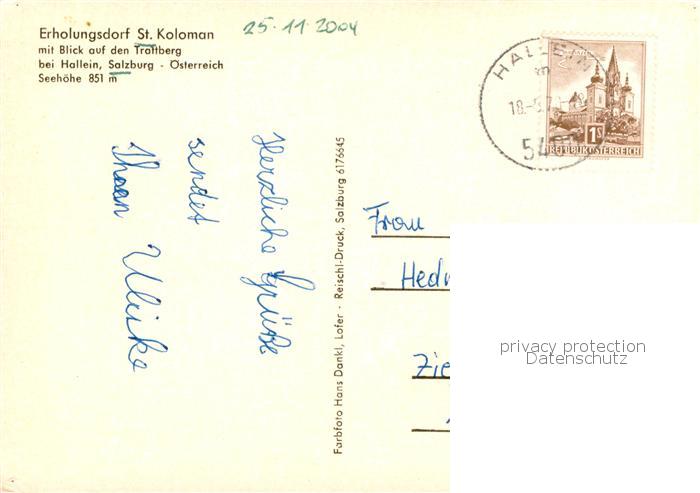 Erholungsdorf St. Koloman
mit Blick auf den Trattberg
bei Hallein, Salzburg - Österreich
Seehöhe 851 m
25·11·2004
HALLEIN
18.-
1S
REPUBLIK ÖSTERREICH
Herzliche Grüße
sendet
Ulrike
Farbfoto Hans Dankl, Lofer · Reischl-Druck, Salzburg 6176645
Frau
Hedw
Zie
privacy protection
Datenschutz